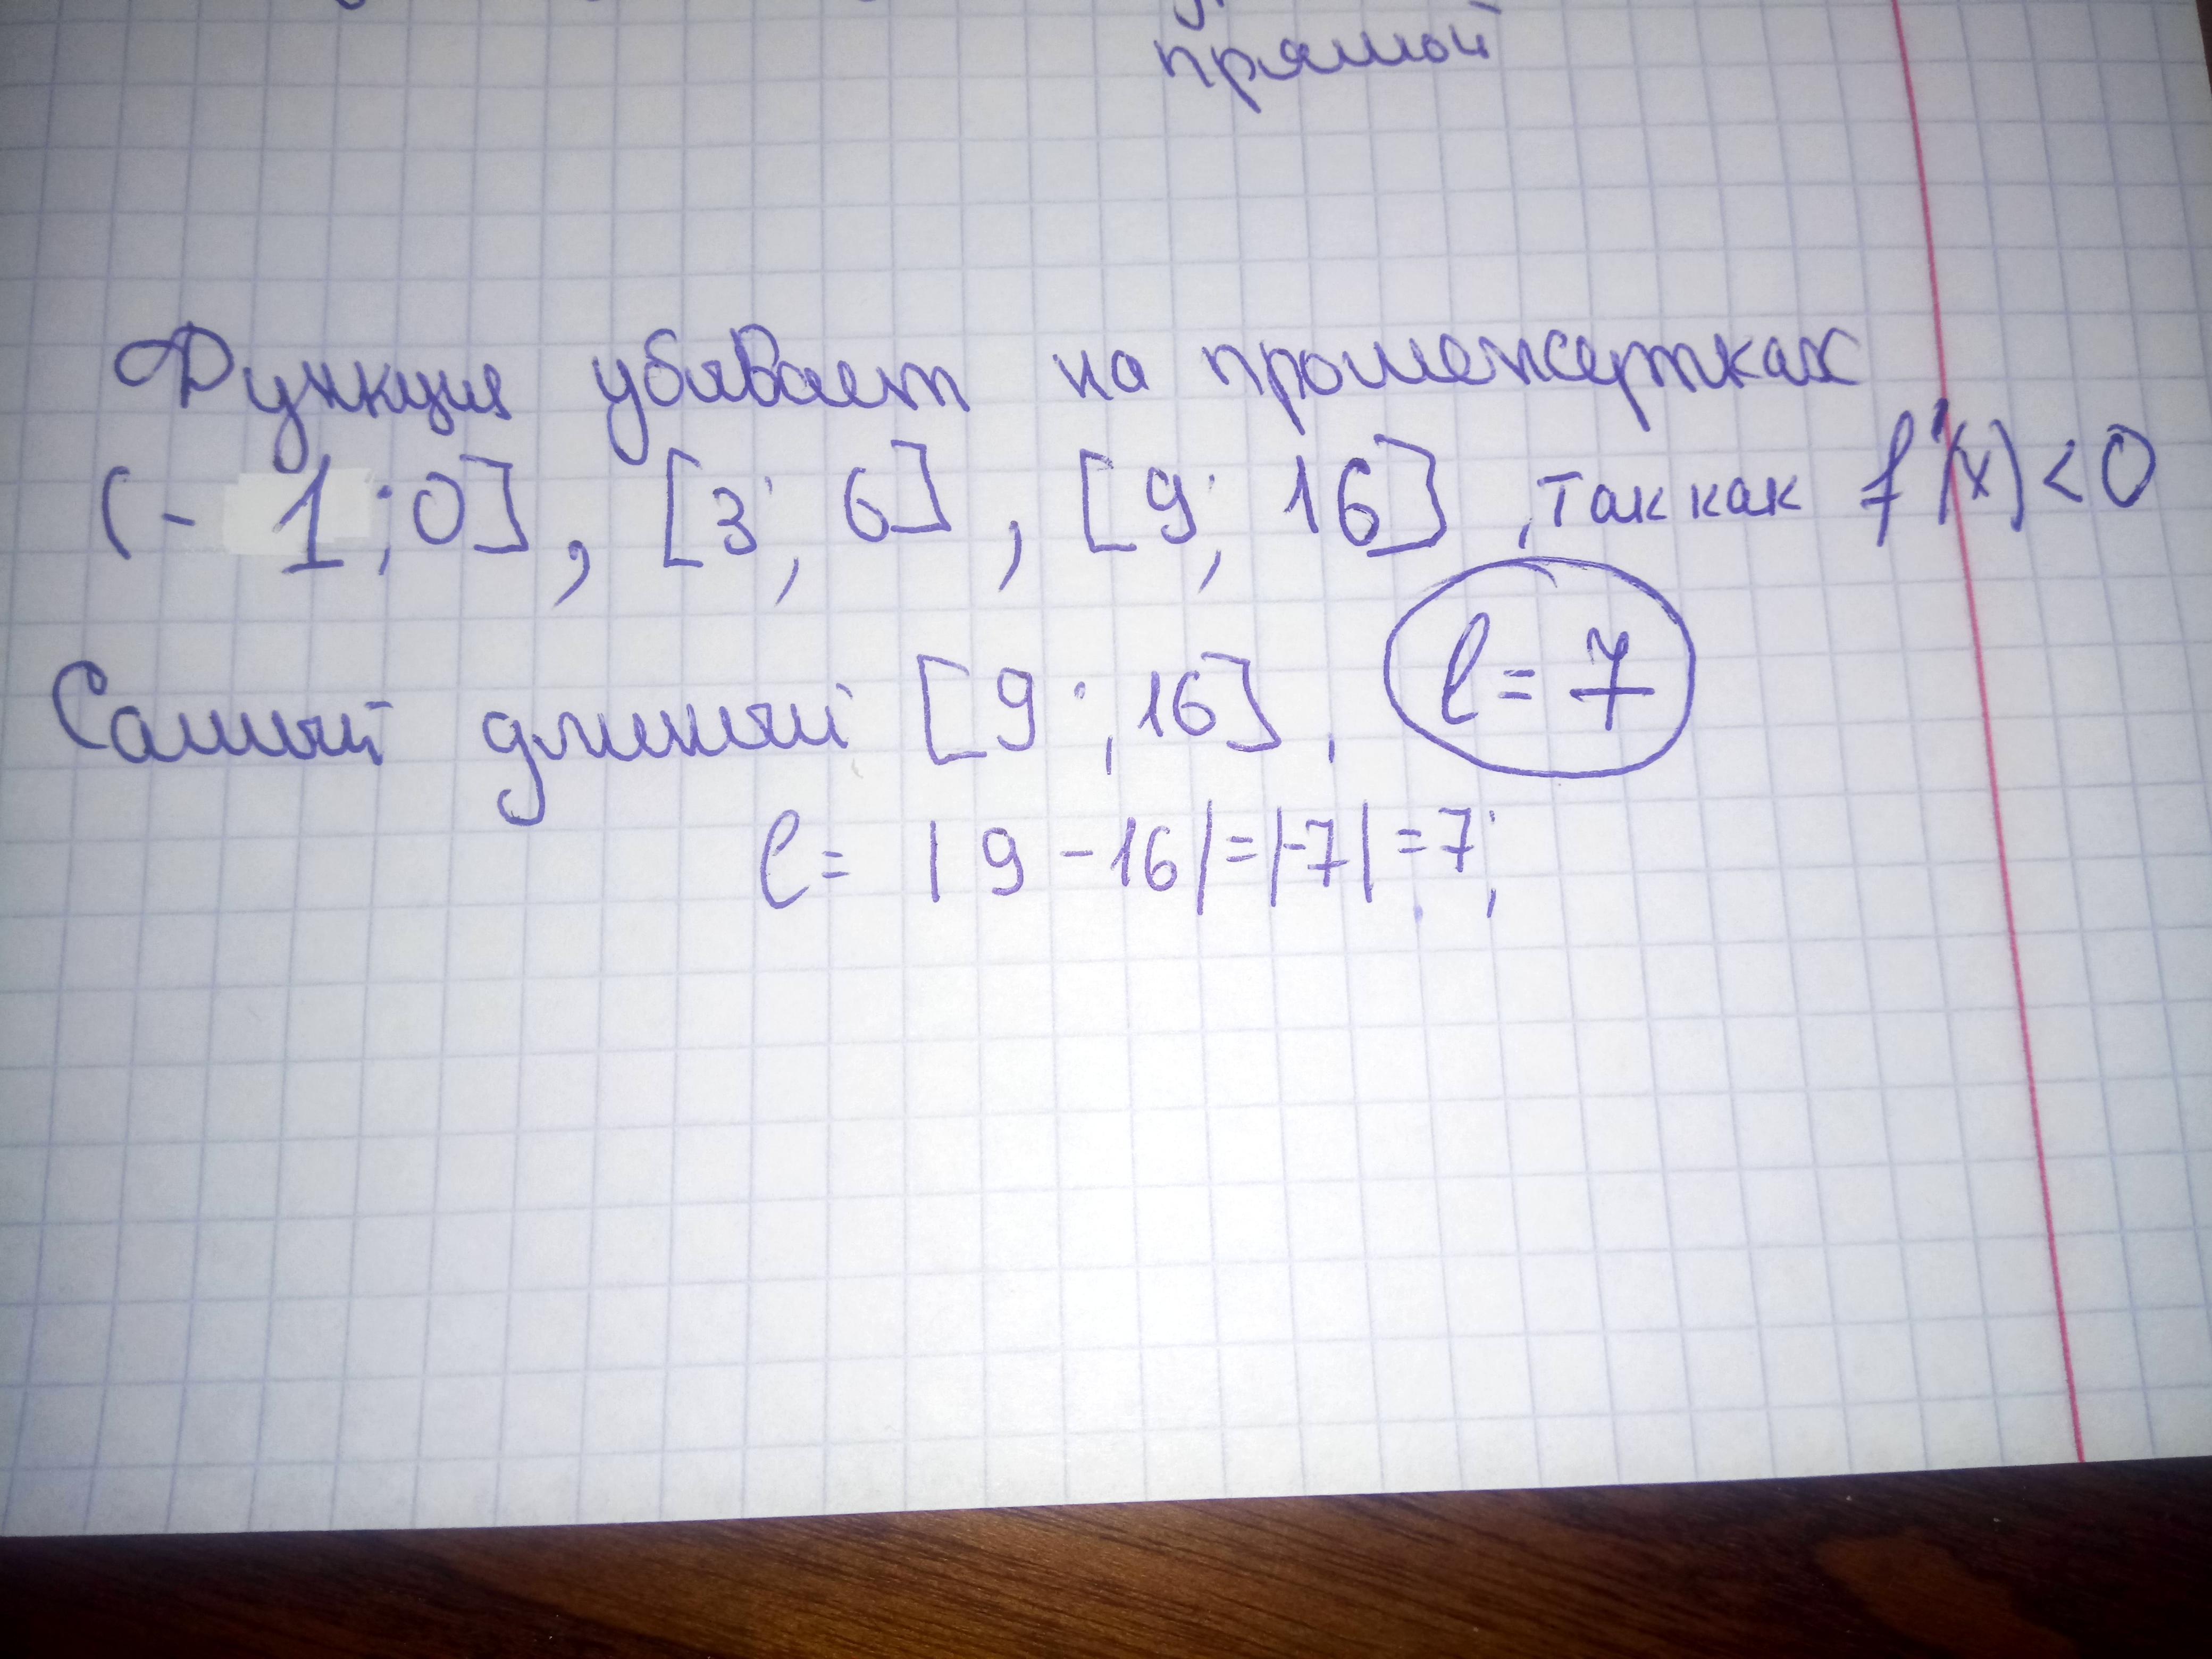 прямой
Функция убывает на промежутках
(- 1; 0], [3; 6], [9; 16], так как f'(x) < 0
Самый длиный [9; 16], l = 7
l = |9 - 16| = |-7| = 7;